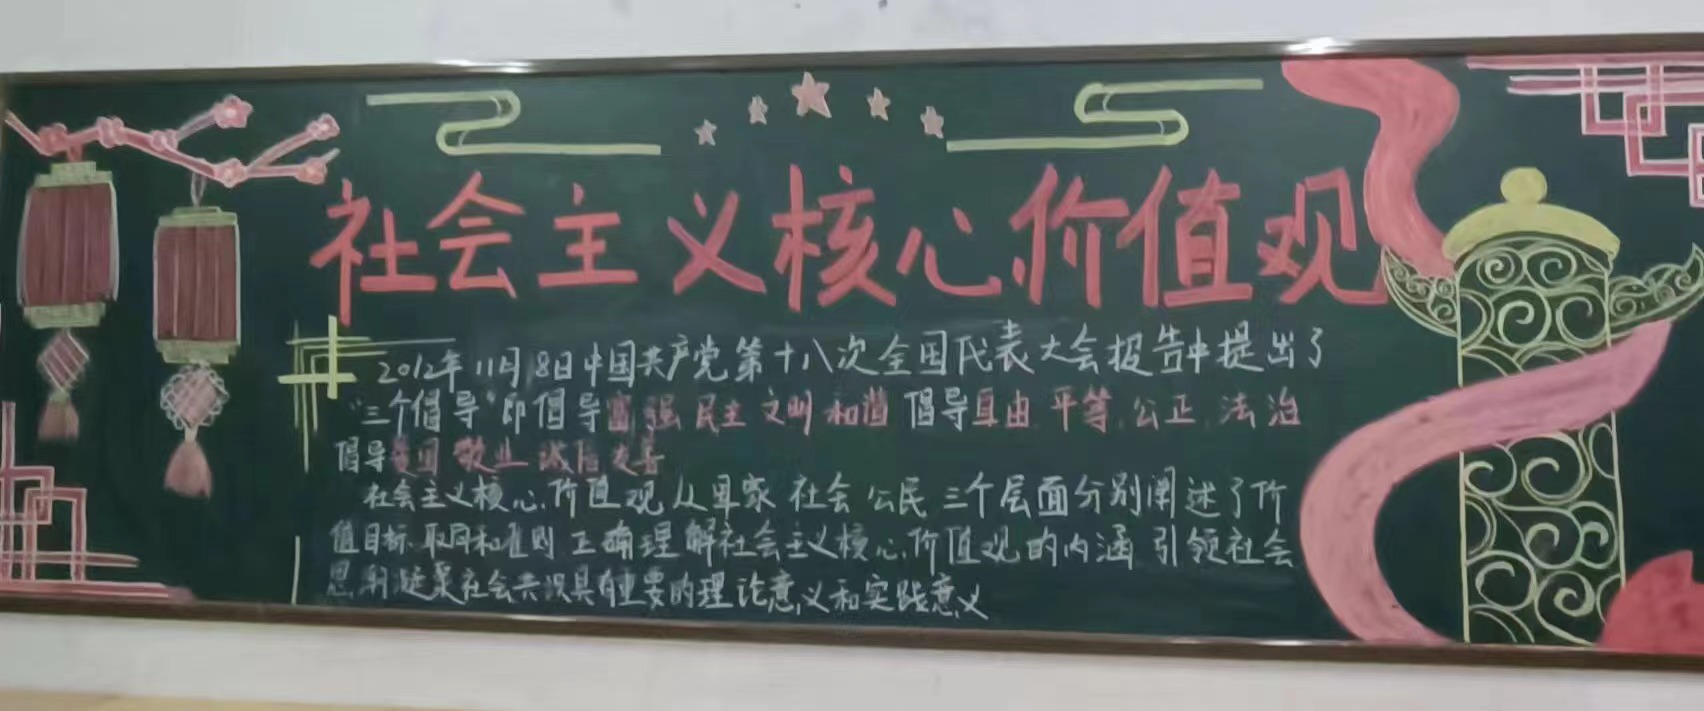 社会主义核心价值观
2012年11月8日中国共产党第十八次全国代表大会报告中提出了
"三个倡导"即倡导富强 民主 文明 和谐 倡导自由.平等.公正.法治
倡导爱国 敬业 诚信 友善
社会主义核心价值观从国家 社会 公民 三个层面分别阐述了价
值目标.取向和准则 正确理解社会主义核心价值观的内涵 引领社会
思潮凝聚社会共识具有重要的理论意义和实践意义